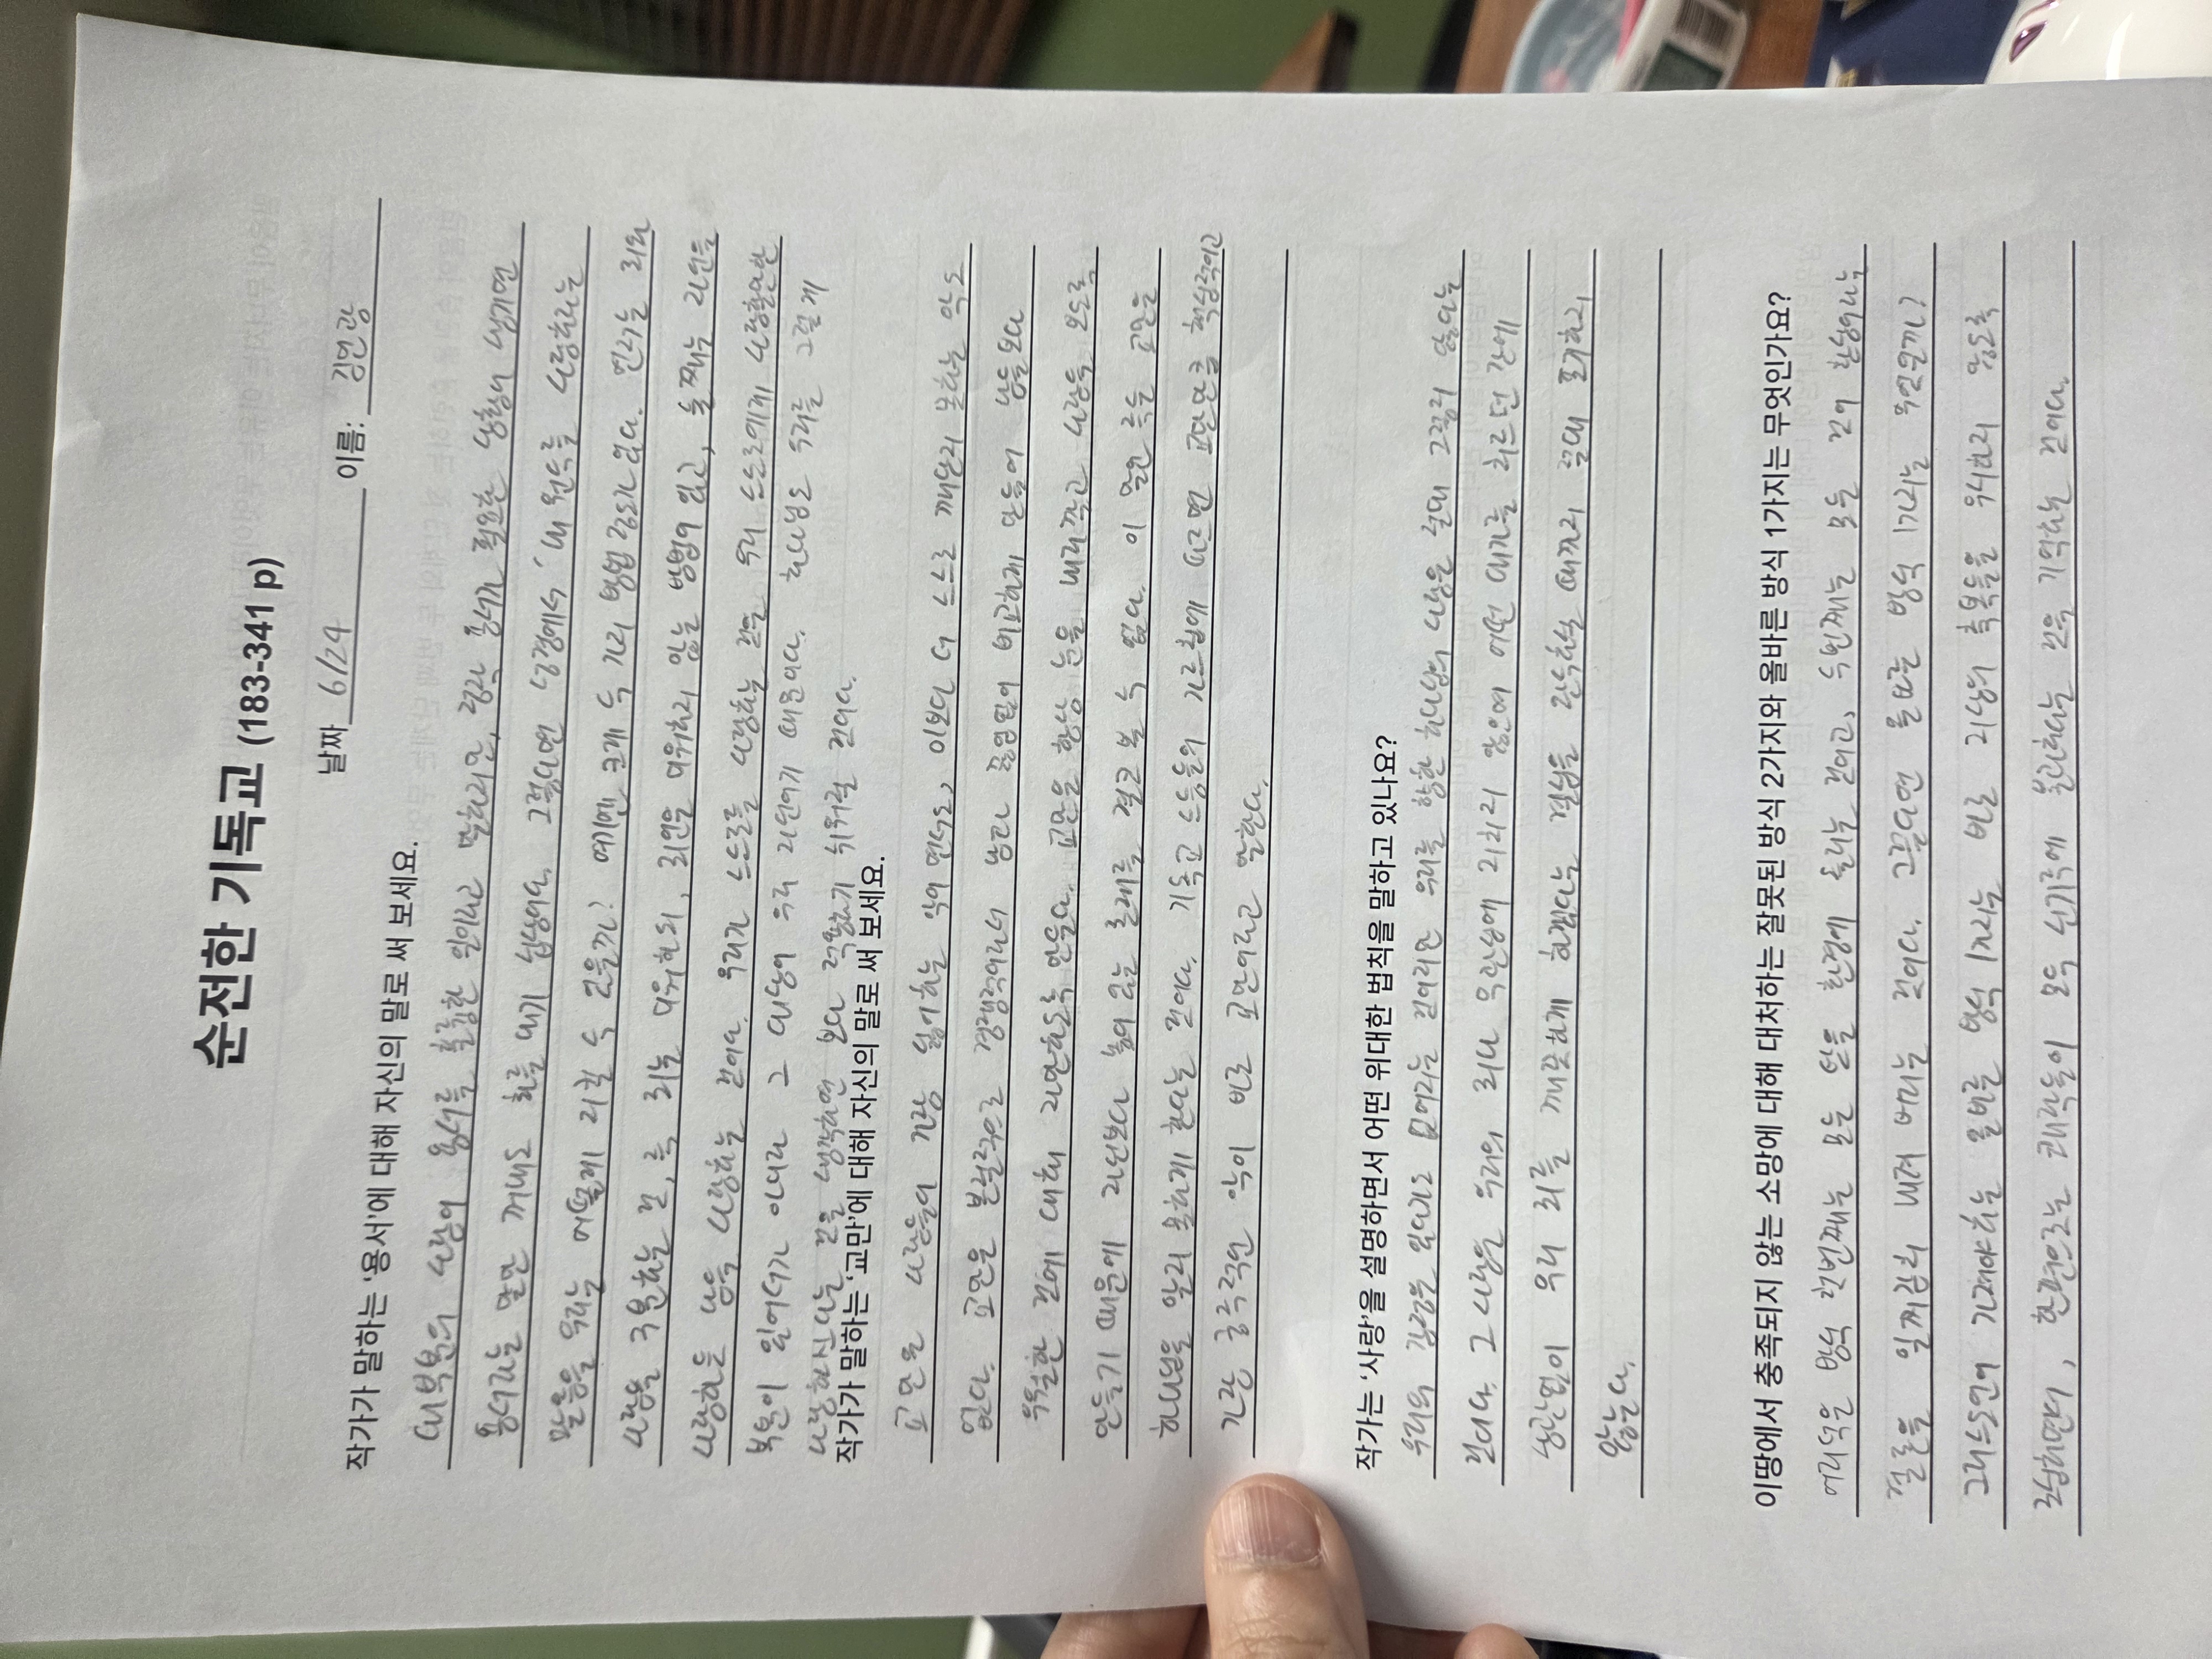 순전한 기독교 (183-341 p)
날짜 6/24 이름: 김연광
작가가 말하는 '용서'에 대해 자신의 말로 써 보세요.
대부분의 사람이 용서를 훌륭한 일이라고 말하지만, 정작 용서가 필요한 상황이 생기면
용서라는 말만 꺼내도 화를 내기 십상이다. 그렇다면 성경에서 '내 원수를 사랑하라는
말씀을 우리는 어떻게 지킬 수 있을까? 여기엔 크게 두 가지 방법 정도가 있다. 먼저는 죄와
사람을 구분하는 것, 즉 죄는 미워하되, 죄인은 미워하지 않는 방법이 있고, 둘째는 죄인을
사랑하듯 남을 사랑하는 것이다. 우리가 스스로를 사랑하는 것은 우리 스스로에게 사랑할만한
부분이 있어서가 아니라 그 대상이 우리 자신이기 때문이다. 하나님도 우리를 그렇게
사랑하신다는 것을 생각하면 보다 적용하기 쉬워질 것이다.
작가가 말하는 '교만'에 대해 자신의 말로 써 보세요.
교만은 사람들이 가장 싫어하는 악이면서도, 이보다 더 스스로 깨닫지 못하는 악도
없다. 교만은 본질적으로 경쟁적이라서 남과 끊임없이 비교하게 만들어 남들보다
우월한 것에 대해 자만하도록 만든다. 교만은 항상 눈을 내리깔고 사람을 보도록
만들기 때문에 자신보다 높이 있는 존재를 결코 볼 수 없다. 이 말은 즉슨 교만은
하나님을 알지 못하게 한다는 것이다. 기독교 스승들의 가르침에 따르면 교만만큼 핵심적이고
가장 궁극적인 악이 바로 교만이라고 말한다.
작가는 '사랑'을 설명하면서 어떤 위대한 법칙을 말하고 있나요?
우리의 감정은 있다가도 없어지는 것이지만 우리를 향한 하나님의 사랑은 절대 그렇지 않다는
것이다. 그 사랑은 우리의 죄나 무관심에 지치지 않으며 어떤 대가를 치르던 간에
상관없이 우리 죄를 깨끗하게 하겠다는 결심을 완수하실 때까지 절대 포기하지
않는다.
이땅에서 충족되지 않는 소망에 대해 대처하는 잘못된 방식 2가지와 올바른 방식 1가지는 무엇인가요?
어리석은 방식 첫번째는 모든 탓을 환경에 돌리는 것이고, 두번째는 모든 것이 환상이라는
결론을 일찌감치 내려 버리는 것이다. 그렇다면 올바른 방식 1가지는 무엇일까?
그리스도인이 가져야하는 올바른 방식 1가지는 바로 지상의 축복들을 무시하지 않도록
조심하면서, 한편으로는 쾌락들이 모두 신기루에 불과하다는 것을 기억하는 것이다.